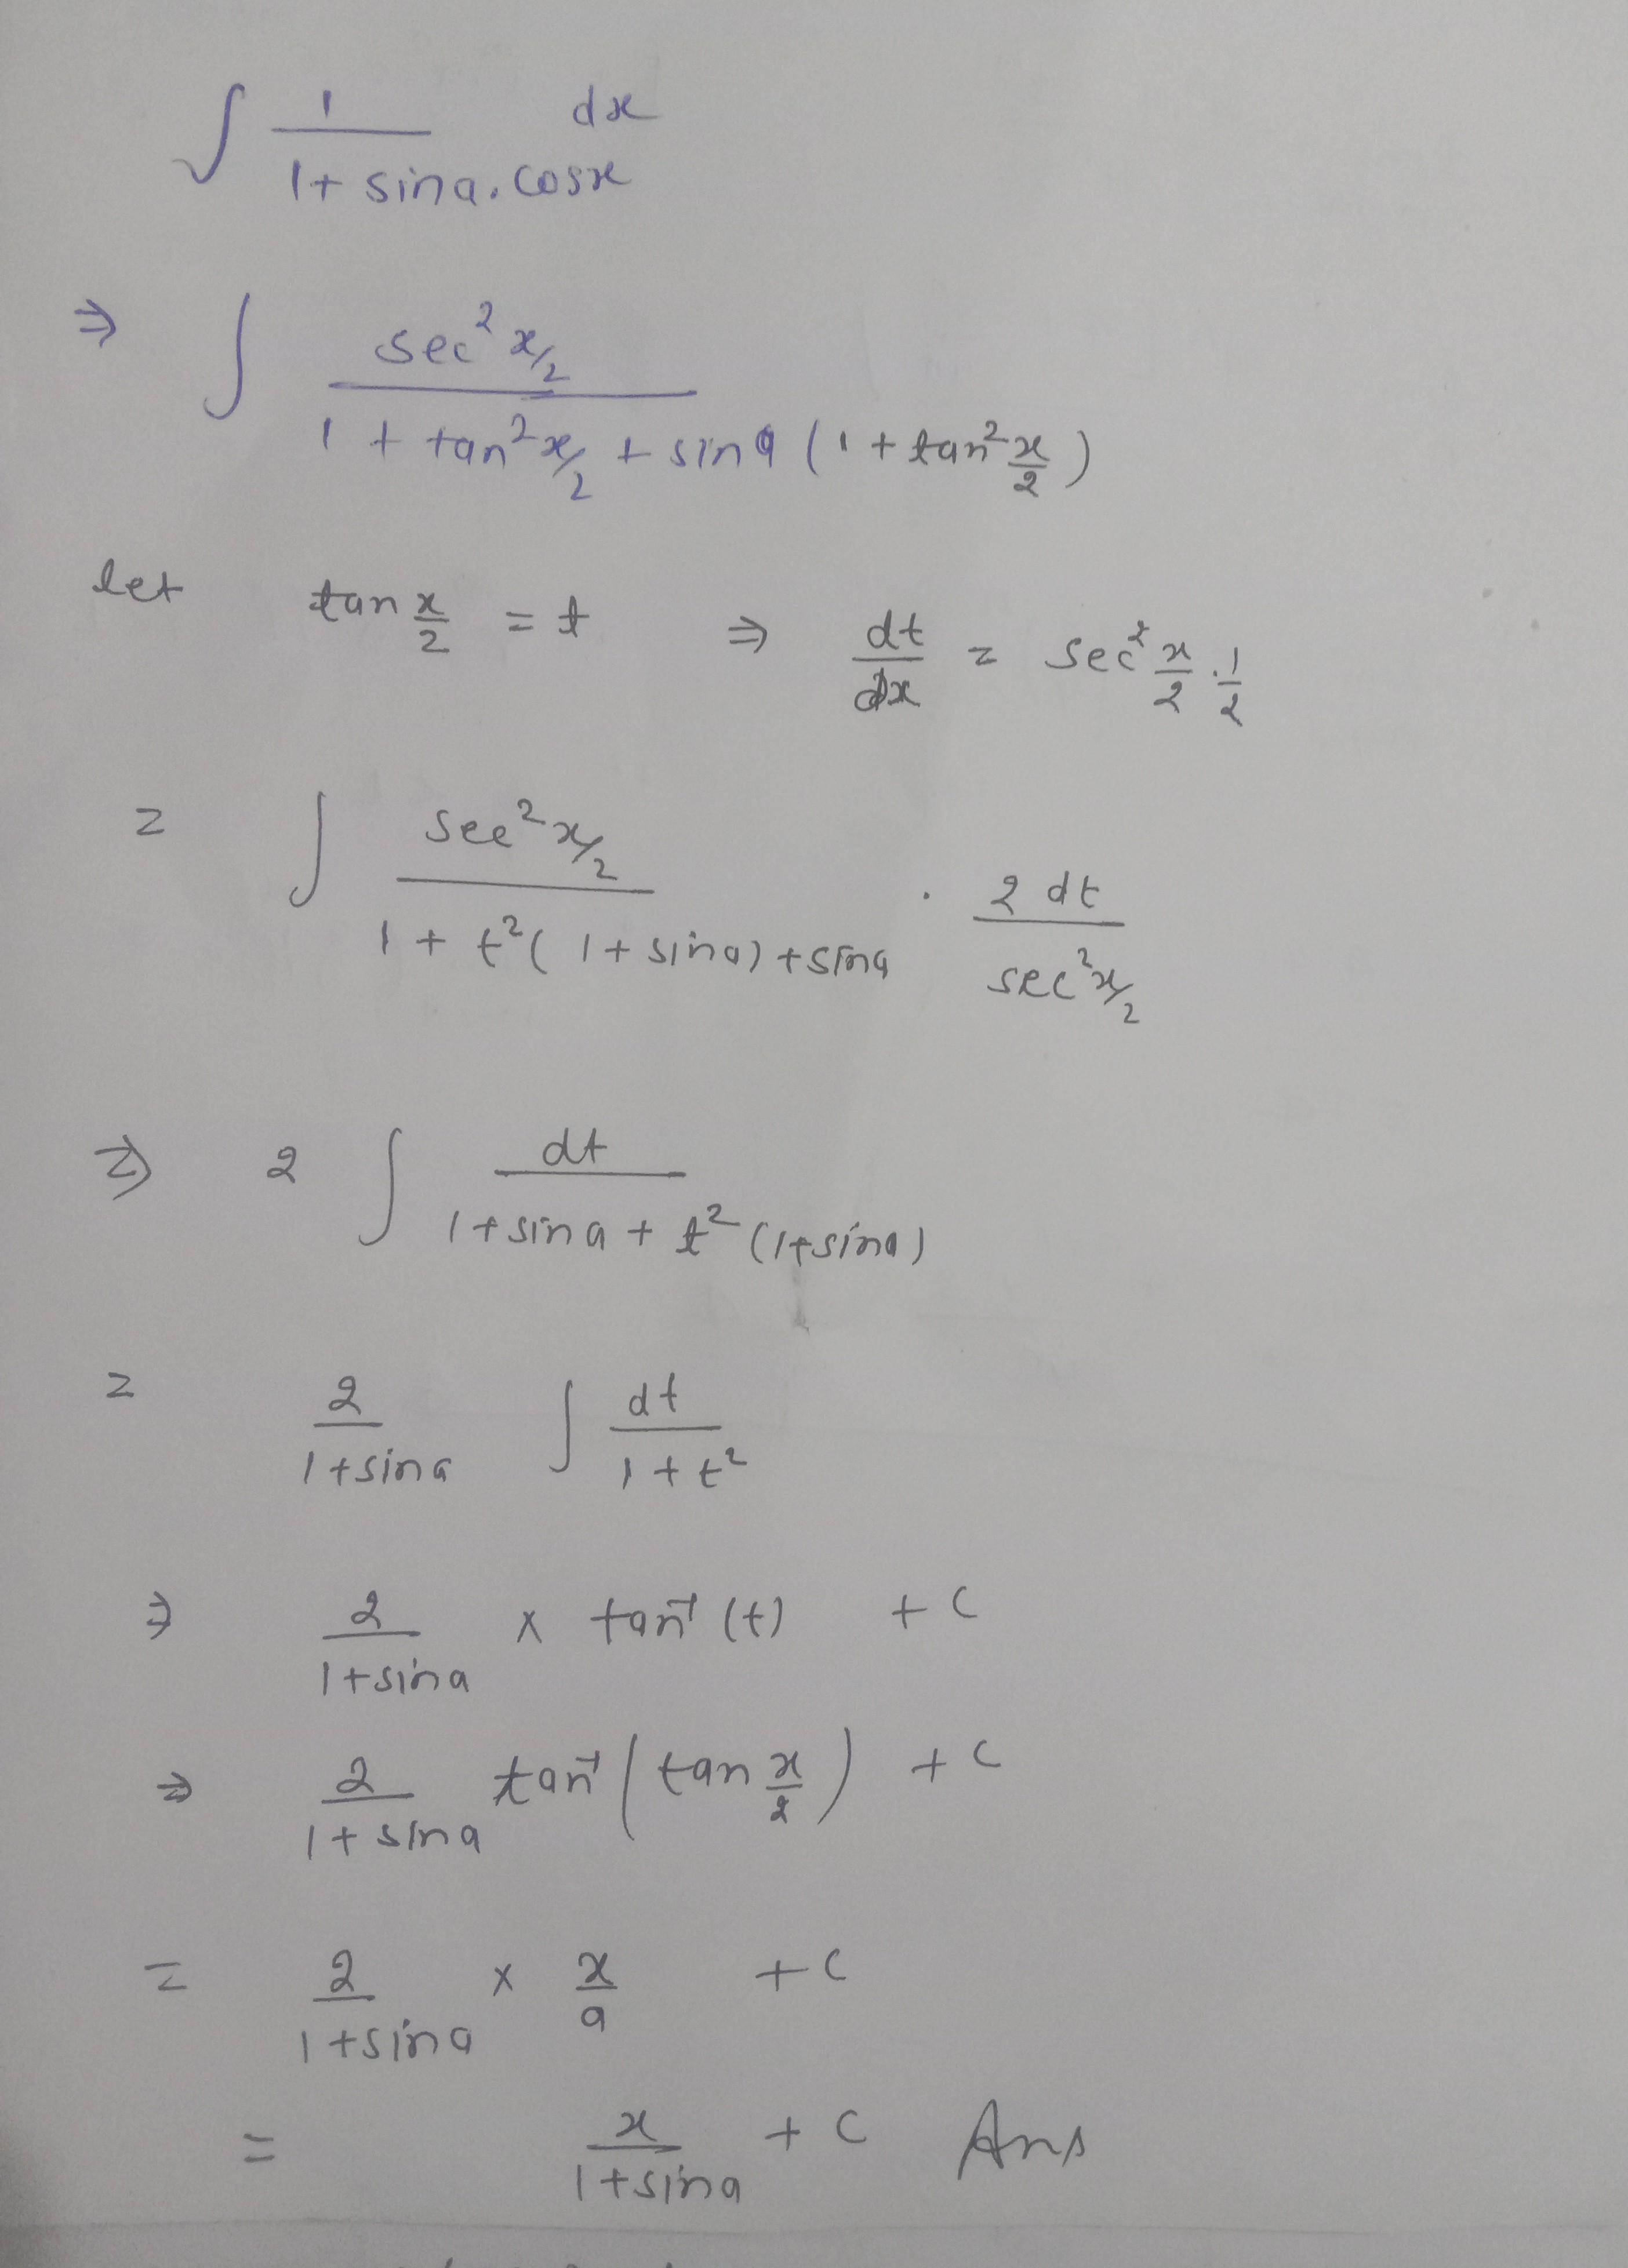 ∫ 1/(1 + sina.cosx) dx
⇒ ∫ sec² x/2 / (1 + tan² x/2 + sina (1 + tan² x/2))
let tan x/2 = t ⇒ dt/dx = sec² x/2 . 1/2
= ∫ sec² x/2 / (1 + t² (1 + sina) + sina) . 2 dt / sec² x/2
⇒ 2 ∫ dt / (1 + sina + t² (1 + sina))
= 2/(1 + sina) ∫ dt/(1 + t²)
⇒ 2/(1 + sina) × tan⁻¹ (t) + C
⇒ 2/(1 + sina) tan⁻¹ (tan x/2) + C
= 2/(1 + sina) × x/2 + C
= x/(1 + sina) + C Ans